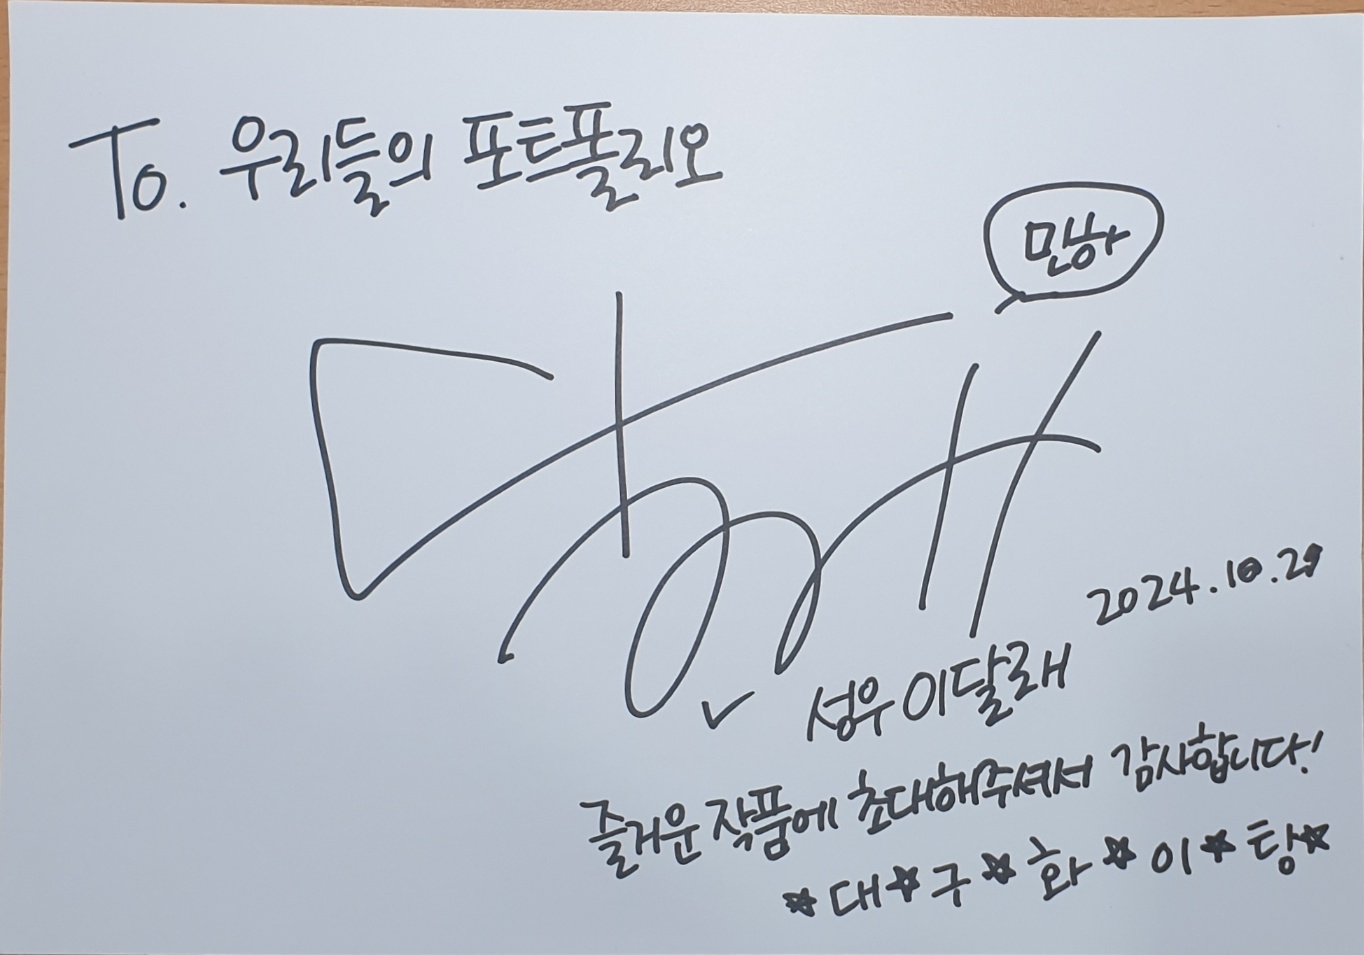 To. 우리들의 포트폴리오
민하
2024.10.29
성우 이달래
즐거운 작품에 초대해주셔서 감사합니다!
★대★구★화★이★팅★